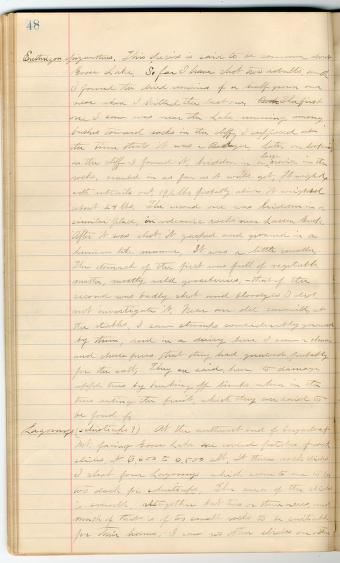 48
Erethizon epixanthum. This species is said to be common about
Goose Lake. So far I have shot two adults and
I found the dried remains of a half grown one
near where I killed the last one. The first
one I saw was near the Lake running among
bushes toward rocks in the cliff. I supposed at
the time that it was a Badger. Later on looking
in the cliff I found it, hidden in a large crevice in the
rocks, crawled in as far as it could get. It weighed,
with entrails out, 19½ lbs, probably alive it weighed
about 24 lbs. The second one was hidden in a
similar place, in volcanic rocks near Lassen Creek.
After it was shot it gasped and groaned in a
human like manner. It was a little smaller.
The stomach of the first was full of vegetable
matter, mostly wild gooseberries, - that of the
second was badly shot and bloody so I did
not investigate it. Near an old sawmill at
the stables, I saw stumps considerably gnawed
by them, and in a dairy here I saw a churn
and cheese press that they had gnawed probably
for the salt. They are said here to damage
apple trees by breaking off limbs when in the
tree eating the fruit, which they are said to
be fond of.
Lagomys (schisticeps?) At the northwest end of
Mt. facing Goose Lake are several patches of rock
slides at 6,000 to 6,500 alt. At these rock slides
I shot four Lagomys which seem to me to be
too dark for schisticeps. The area of the slides
is small, altogether but two or three acres and
much of that is of too small rocks to be suitable
for their homes. I saw no other slides on the